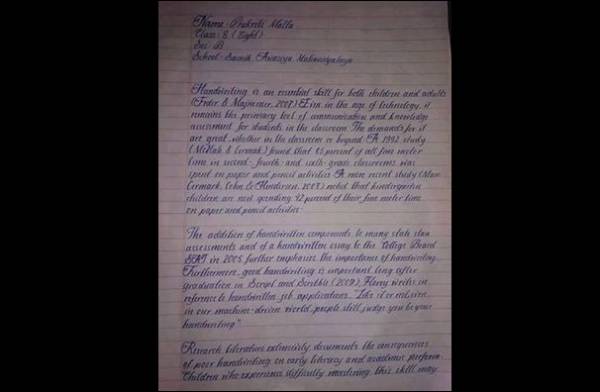 Name : Prakriti Malla
Class : 8 (Eight)
Sec : B
School : Sainik Awasiya Mahavidyalaya
Handwriting is an essential skill for both children and adults
(Feder & Majnemer, 2007). Even in the age of technology, it
remains the primary tool of communication and knowledge
assessment for students in the classroom. The demands for it
are great, whether in the classroom or beyond. A 1992 study
(McHale & Cermak) found that 85 percent of all fine motor
time in second- fourth- and sixth- grade classrooms was
spent on paper and pencil activities. A more recent study (Marr
Cermark, Cohn & Henderson, 2003) noted that kindergarten
children are now spending 42 percent of their fine motor time
on paper and pencil activities.
The addition of handwritten components to many state
assessments and of a handwritten essay to the College Board
SAT in 2005 further emphasize the importance of handwriting.
Furthermore, good handwriting is important long after
graduation. In Script and Scribble (2009), Florey writes in
reference to handwritten job applications "Like it or not, even
in our machine-driven world, people still judge you by your
handwriting"
Research literature extensively documents the consequences
of poor handwriting on early literacy and academic
Children who experience difficulty mastering this skill may